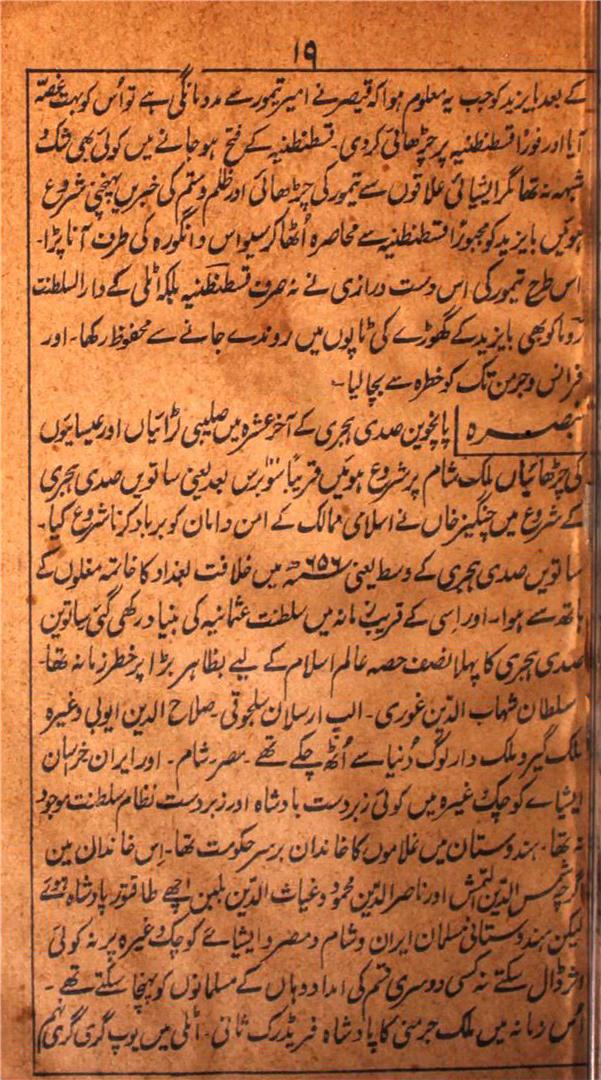 ۱۹
کے بعد بایزید کو جب یہ معلوم ہوا کہ قیصر نے امیر تیمور سے مدد مانگی ہے تو اُس کو بہت غصہ
آیا اور فوراً قسطنطنیہ پر چڑھائی کر دی۔ قسطنطنیہ کے فتح ہو جانے میں کوئی بھی شک
شبہہ نہ تھا مگر ایشیائی علاقوں سے تیمور کی چڑھائی اور ظلم و ستم کی خبریں پہنچنی شروع
ہوئیں بایزید کو مجبوراً قسطنطنیہ سے محاصرہ اُٹھا کر سیواس و انگورہ کی طرف آنا پڑا۔
اس طرح تیمور کی اس دست درازی نے نہ صرف قسطنطنیہ بلکہ اٹلی کے دارالسلطنت
روما کو بھی بایزید کے گھوڑے کی ٹاپوں میں روندے جانے سے محفوظ رکھا۔ اور
فرانس و جرمن تک کو خطرہ سے بچا لیا۔
تبصرہ پانچویں صدی ہجری کے آخر عشرہ میں صلیبی لڑائیاں اور عیسائیوں
کی چڑھائیاں ملک شام پر شروع ہوئیں قریباً سو برس بعد یعنی ساتویں صدی ہجری
کے شروع میں چنگیز خاں نے اسلامی ممالک کے امن و امان کو برباد کرنا شروع کیا۔
ساتویں صدی ہجری کے وسط یعنی ۶۵۶ھ میں خلافت بغداد کا خاتمہ مغلوں کے
ہاتھ سے ہوا۔ اور اِسی کے قریب زمانہ میں سلطنت عثمانیہ کی بنیاد رکھی گئی ساتویں
صدی ہجری کا پہلا نصف حصہ عالم اسلام کے لیے بظاہر بڑا پرخطر زمانہ تھا۔
سلطان شہاب الدین غوری۔ الپ ارسلان سلجوقی۔ صلاح الدین ایوبی وغیرہ
ملک گیر و ملک دار لوگ دُنیا سے اُٹھ چکے تھے۔ مصر۔ شام۔ اور ایران خراسان
ایشیاے کوچک وغیرہ میں کوئی زبردست بادشاہ اور زبردست نظام سلطنت موجود
نہ تھا۔ ہندوستان میں غلاموں کا خاندان برسر حکومت تھا۔ اِس خاندان میں
اگرچہ شمس الدین التمش اور ناصر الدین محمود و غیاث الدین بلبن اچھے طاقتور بادشاہ ہوئے
لیکن ہندوستانی مسلمان ایران و شام و مصر و ایشیائے کوچک وغیرہ پر نہ کوئی
اثر ڈال سکتے نہ کسی دوسری قسم کی امداد وہاں کے مسلمانوں کو پہنچا سکتے تھے۔
اُس زمانہ میں ملک جرمنی کا بادشاہ فریڈرک ثانی۔ اٹلی میں پوپ گری گری نہم